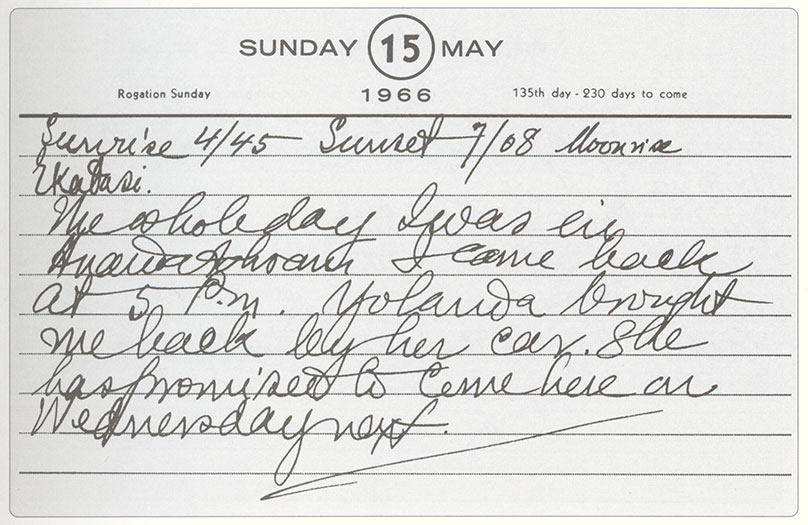 SUNDAY 15 MAY
Rogation Sunday 1966 135th day - 230 days to come
Sunrise 4/45 Sunset 7/08 Moonrise
Ekadasi.
The whole day I was in
Ananda Ashram I came back
at 5 P.m. Yolanda brought
me back by her car. She
has promised to come here on
Wednesday next.